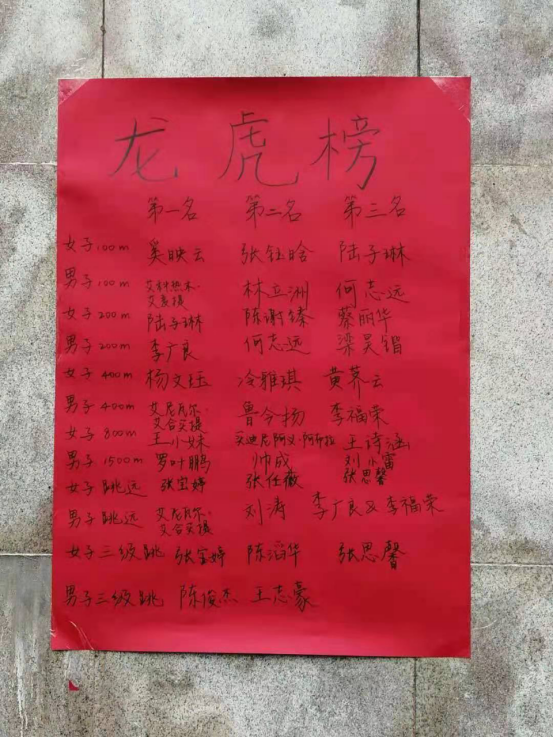 龙虎榜
第一名 第二名 第三名
女子100m 奚映云 张钰晗 陆子琳
男子100m 艾科热木·艾麦提 林立洲 何志远
女子200m 陆子琳 陈谢臻 蔡丽华
男子200m 李广良 何志远 梁昊锴
女子400m 杨文珏 冷雅琪 黄荞云
男子400m 艾尼瓦尔·艾合买提 鲁令扬 李福荣
女子800m 王小妹 阿布拉 王诗涵
男子1500m 罗叶鹏 帅成 刘小富
女子跳远 张宝婷 张任薇 张思馨
男子跳远 艾尼瓦尔·艾合买提 刘涛 李广良及李福荣
女子三级跳 张宝婷 陈滔华 张思馨
男子三级跳 陈俊杰 王志豪